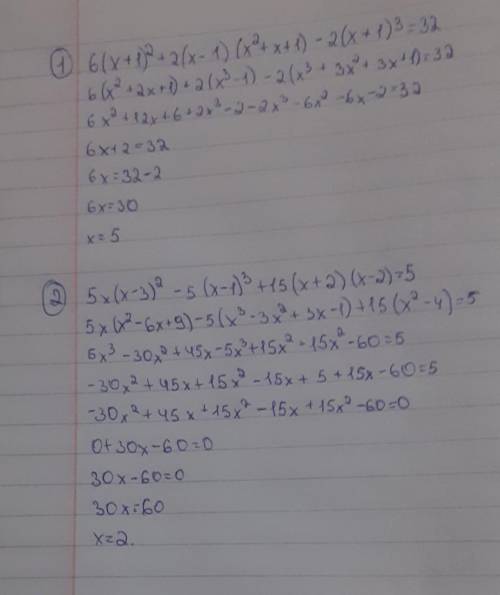 ① 6(x+1)²+2(x-1)(x²+x+1)-2(x+1)³=32
6(x²+2x+1)+2(x³-1)-2(x³+3x²+3x+1)=32
6x²+12x+6+2x³-2-2x³-6x²-6x-2=32
6x+2=32
6x=32-2
6x=30
x=5
② 5x(x-3)²-5(x-1)³+15(x+2)(x-2)=5
5x(x²-6x+9)-5(x³-3x²+3x-1)+15(x²-4)=5
5x³-30x²+45x-5x³+15x²-15x²-60=5
-30x²+45x+15x²-15x+5+15x-60=5
-30x²+45x+15x²-15x+15x²-60=0
0+30x-60=0
30x-60=0
30x=60
x=2.